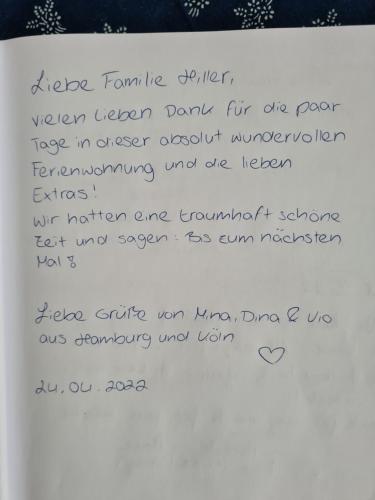 Liebe Familie Hiller,
vielen lieben Dank für die paar
Tage in dieser absolut wundervollen
Ferienwohnung und die lieben
Extras!
Wir hatten eine traumhaft schöne
Zeit und sagen: Bis zum nächsten
Mal!
Liebe Grüße von Mina, Dina & Vio
aus Hamburg und Köln
24.04.2022